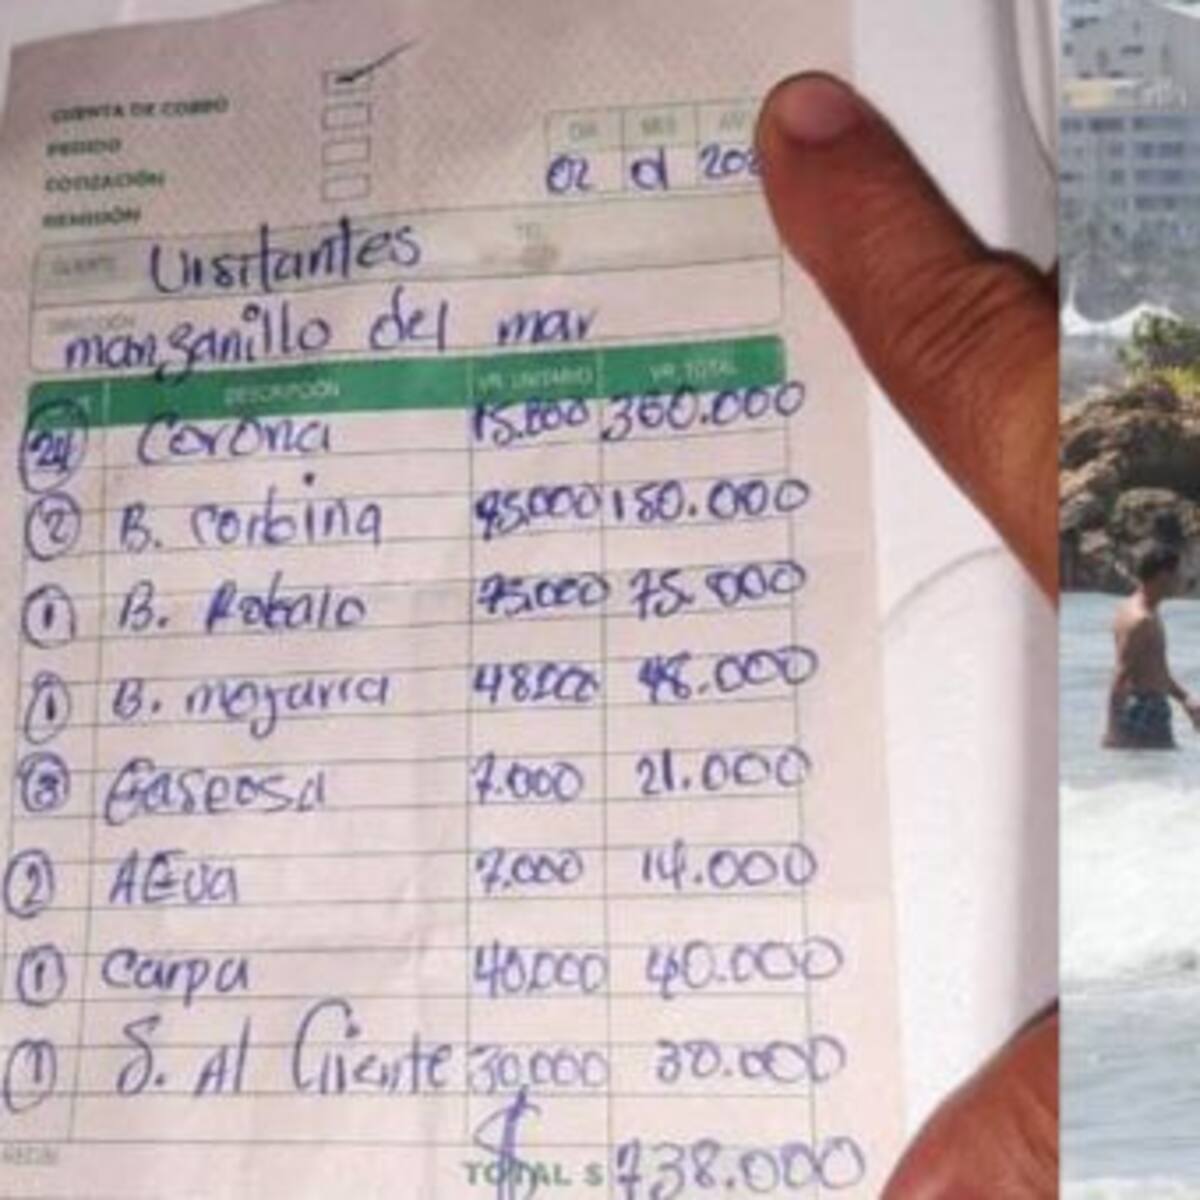 CUENTA DE COBRO
PEDIDO
COTIZACIÓN
REMISIÓN
DIA MES
02 01 202
CLIENTE Visitantes TEL
DIRECCIÓN
manzanillo del mar
DESCRIPCIÓN VR. UNITARIO VR. TOTAL
24 Corona 15.000 360.000
2 B. corbina 150.000
1 B. Robalo 75.000 75.000
1 B. mojarra 48.000 48.000
3 Gaseosa 7.000 21.000
2 AGua 7.000 14.000
1 Carpa 40.000 40.000
1 S. Al Cliente 30.000 30.000
$
TOTAL $ 738.000